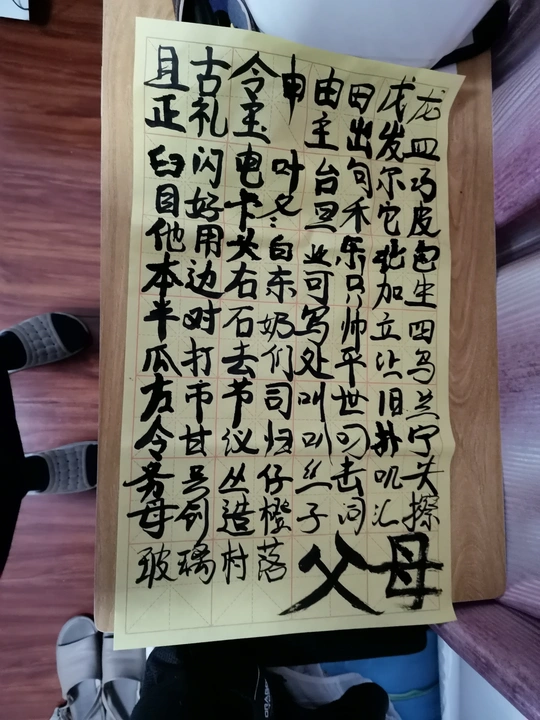 且古令申由田戊龙
正礼玉主出发皿
臼闪电叶台句尔巧
目好卡冬旦禾它皮
他用头白业乐北包
本边右东可只加生
半对石奶写帅立四
瓜打去们处平让鸟
左市节司叫世旧兰
令甘议归叭叼扑宁
务号丛仔丝击叽失
母创造橙子汇擦
玻璃村落父母